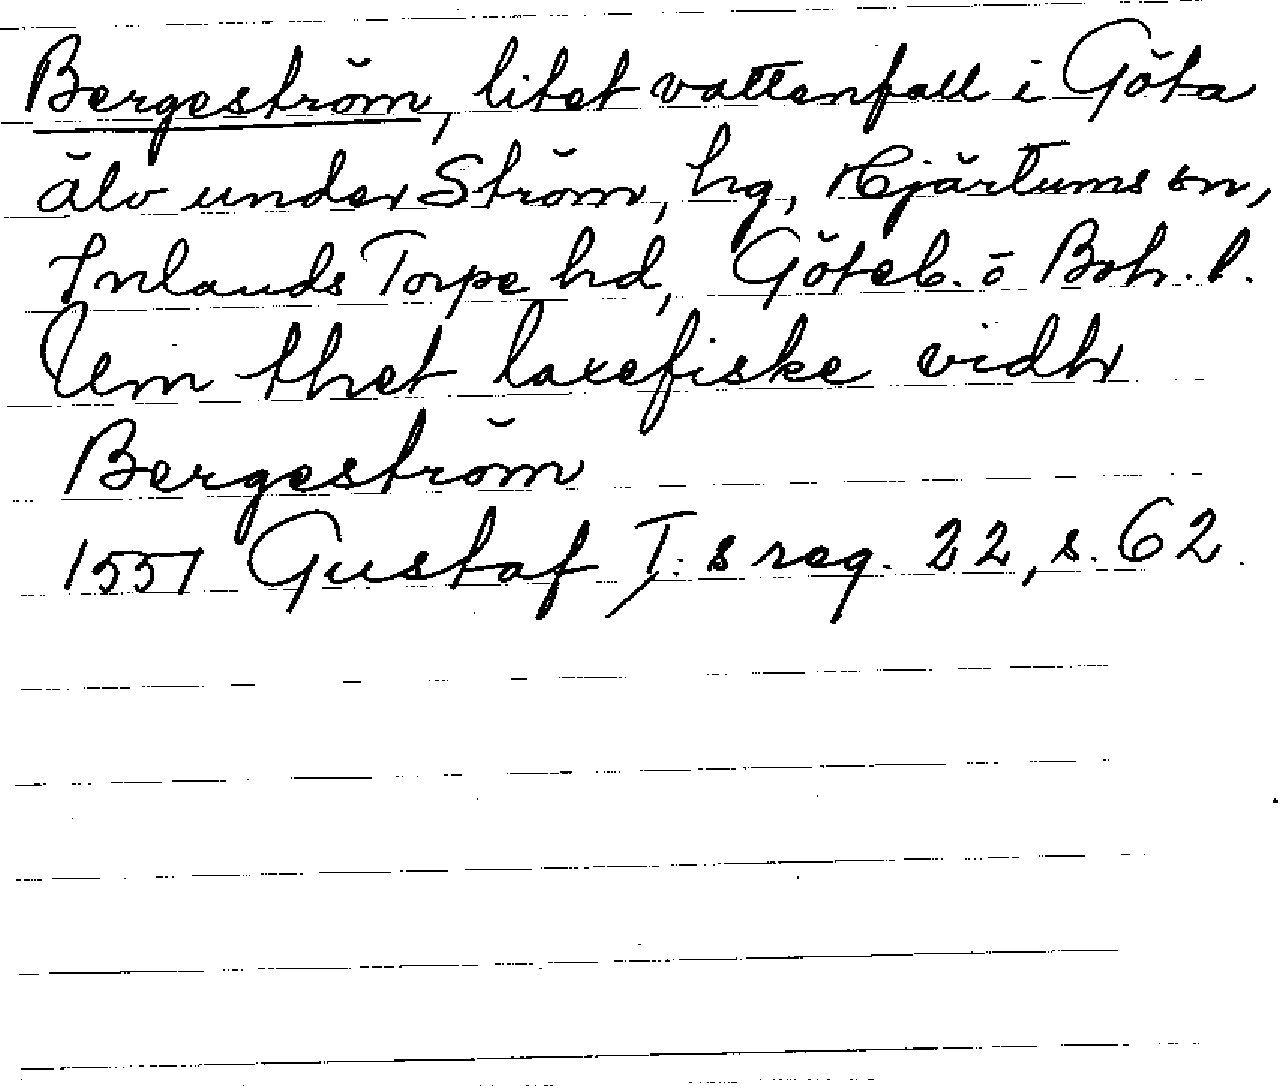 Bergeström, litet vattenfall i Göta
älv under Ström, hg, Hjärtums sn,
Inlands Torpe hd, Göteb. o Boh. l.
Um thet laxefiske vidh
Bergeström
1551 Gustaf I:s reg. 22, s. 62.